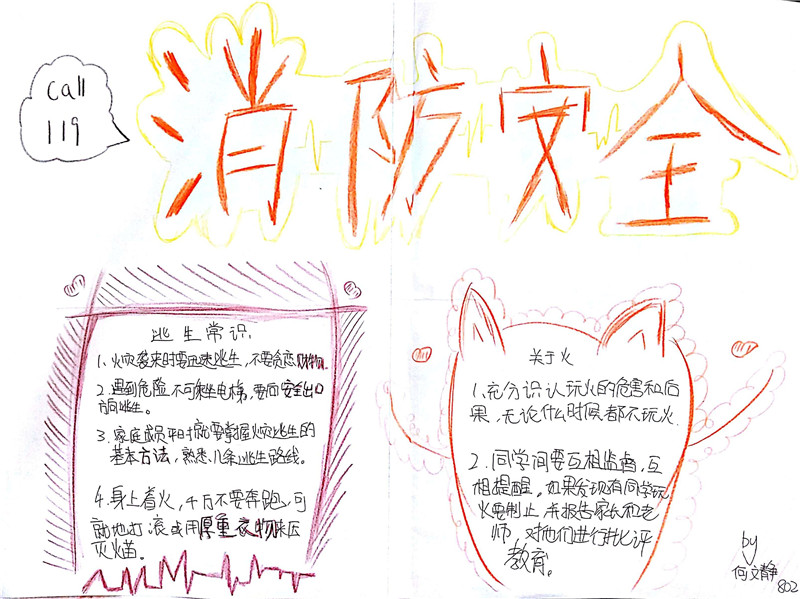 call
119
消防安全
逃生常识
1、火灾袭来时要迅速逃生，不要贪恋财物。
2、遇到危险，不可乘坐电梯，要向安全出口
方向逃生。
3、家庭成员平时就要掌握火灾逃生的
基本方法，熟悉几条逃生路线。
4、身上着火，千万不要奔跑，可
就地打滚或用厚重衣物压
灭火苗。
关于火
1、充分识认玩火的危害和后
果，无论什么时候都不玩火.
2、同学间要互相监督，互
相提醒。如果发现有同学玩
火要制止，并报告家长和老
师，对他们进行批评
教育。
by
何文静
802